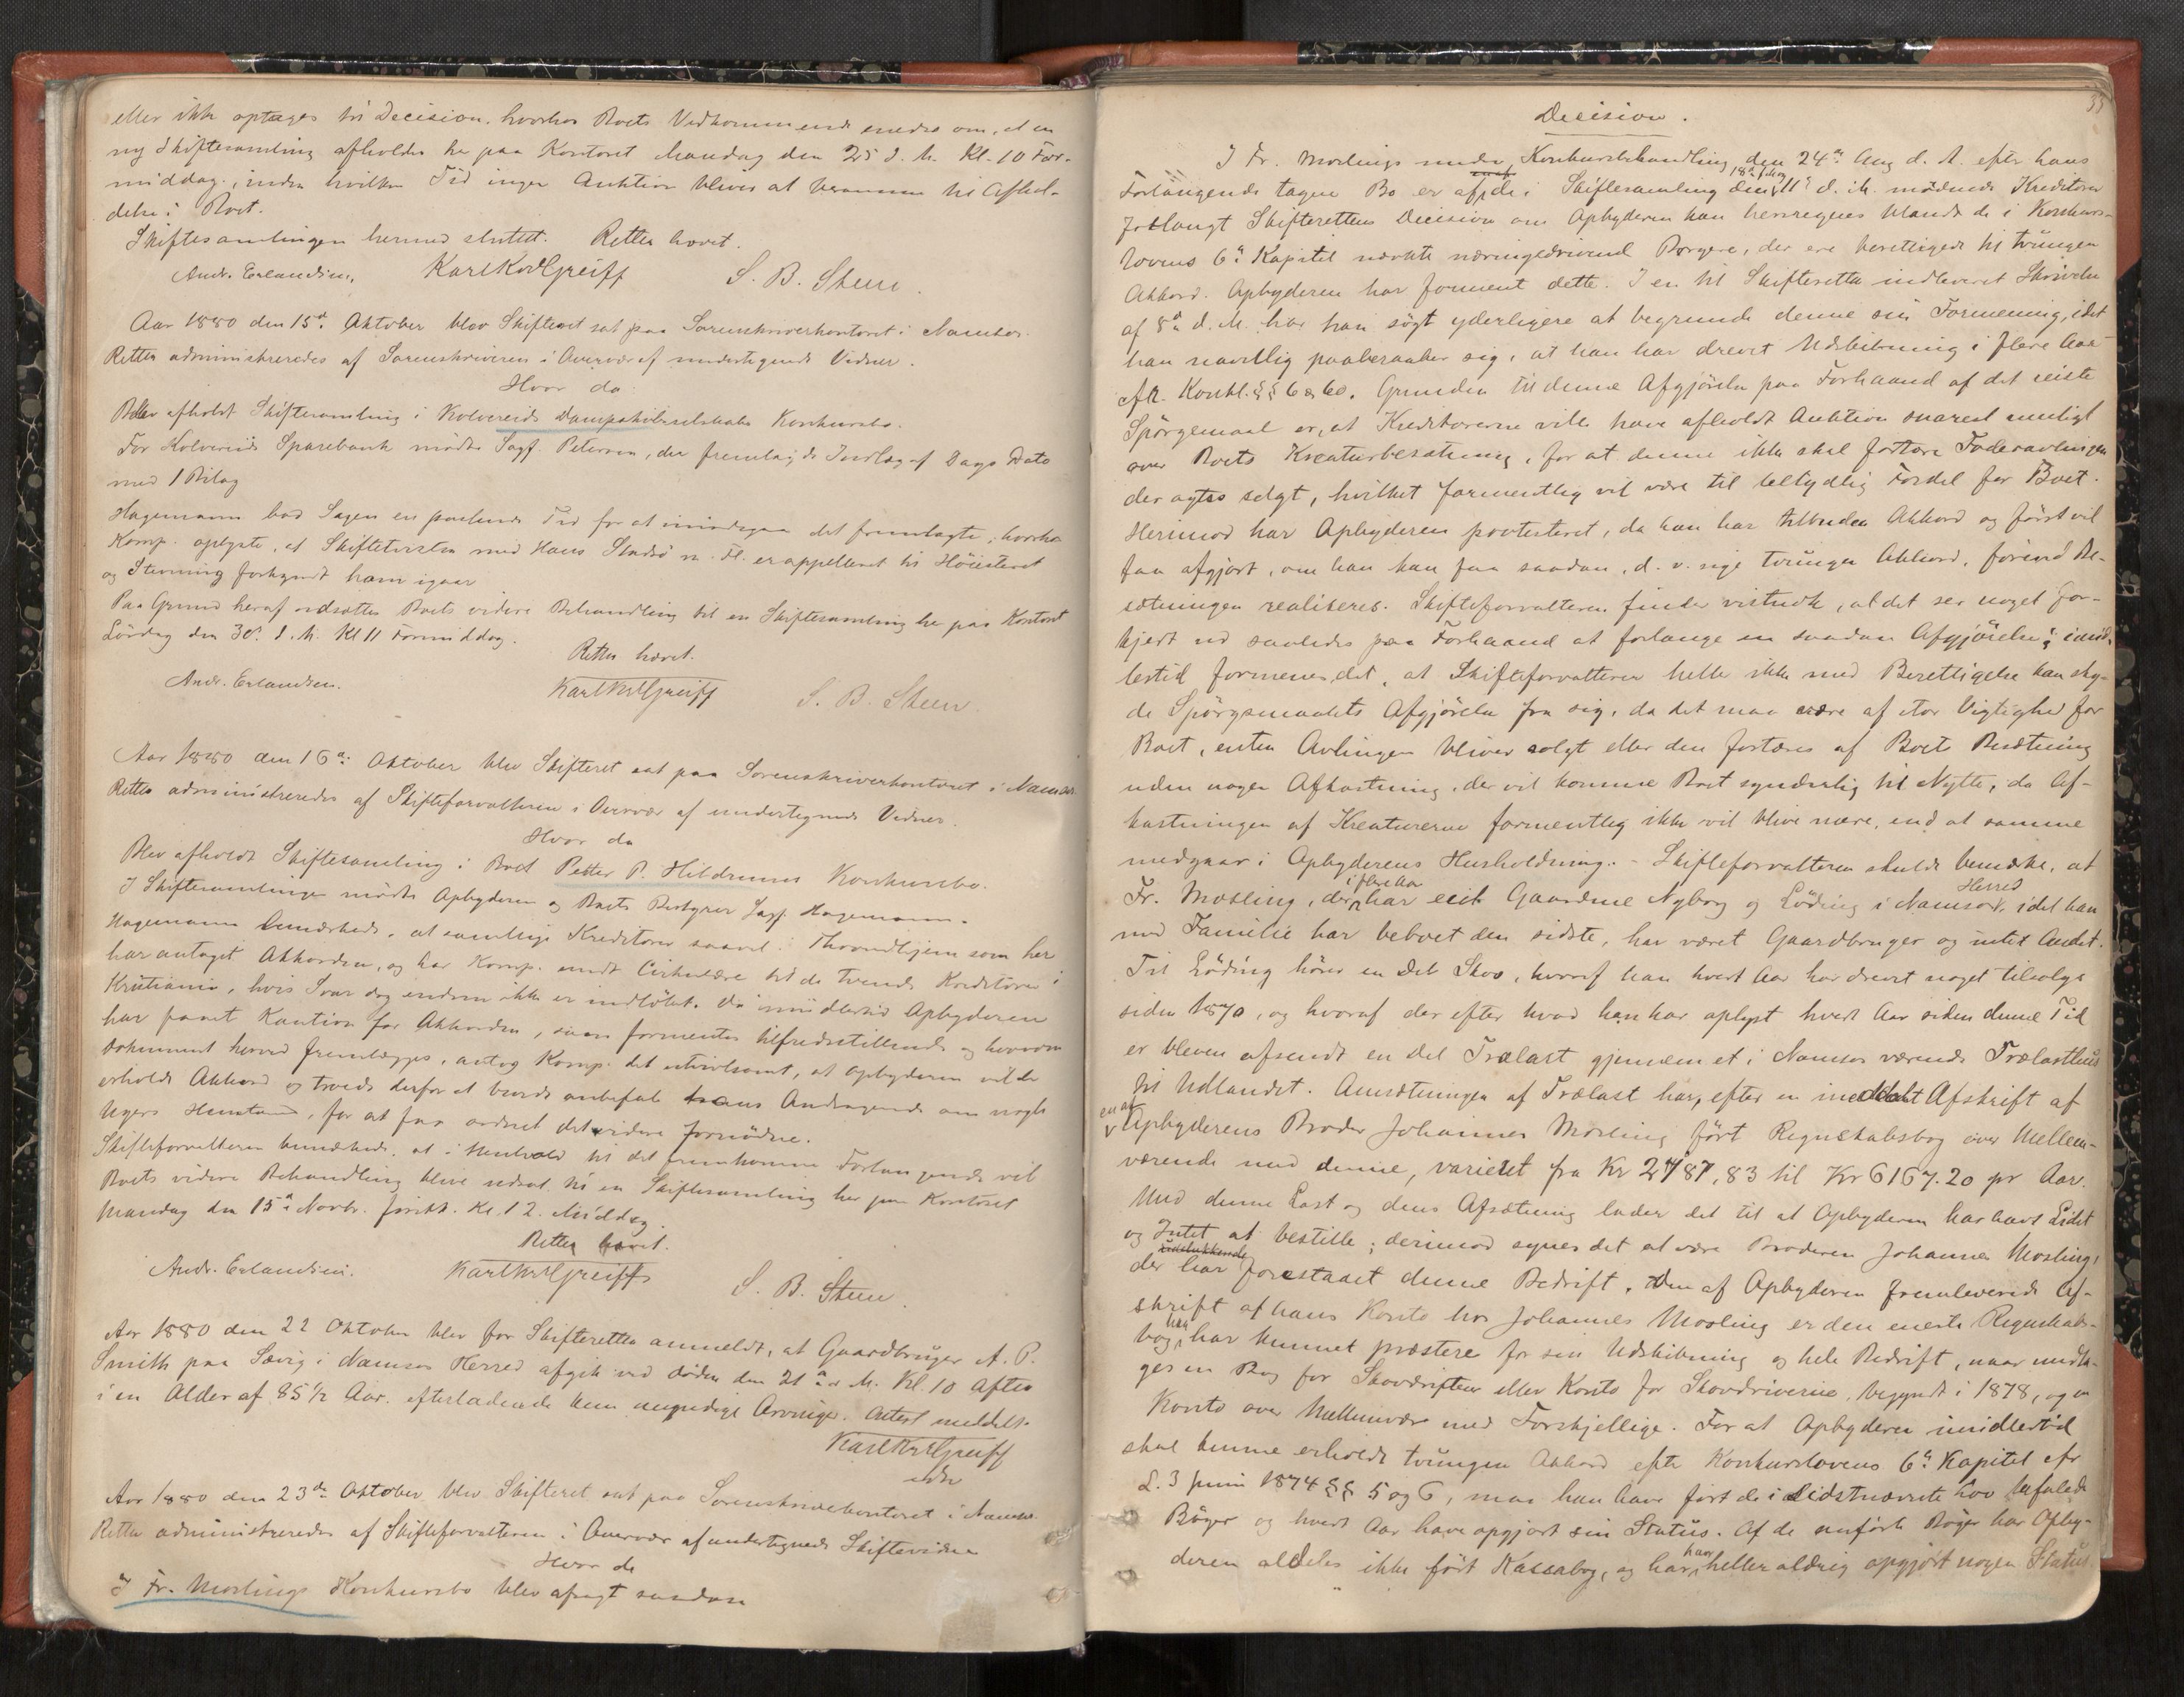 eller ikke optages til Decision, hvorhos Boets Vedkommende enedes om, at en
ny Skiftesamling afholdes her paa Kontoret Mandag den 25 d. M. Kl. 10 For-
middag, inden hvilken Tid ingen Auktion bliver at beramme til Afhol-
delse i Boet.
Skiftesamlingen hermed sluttet. Retten hævet.
Andr. Erlandsen. Karl KrdGreiff S. B. Steen.
Aar 1880 den 15de Oktober blev Skifteret sat paa Sorenskriverkontoret i Namsos.
Retten administreredes af Sorenskriveren i Overvær af undertegnede Vidner.
Hvor da
Blev afholdt Skiftesamling i Kolvereids Dampskibsselskabs Konkursbo.
For Kolvereids Sparebank mødte Sagf. Petersen, der fremlagde Indlæg af Dags Dato
med 1 Bilag
Hagemann bad Sagen en passende Tid for at imødegaa det fremlagte, hvorhos
Komp. oplyste, at Skiftetvisten med Hans Sandsø m. Fl. er appelleret til Høiesteret
og Stevning forkyndt ham igaar
Paa Grund heraf udsættes Boets videre Behandling til en Skiftesamling her paa Kontoret
Lørdag den 30te d. M. Kl 11 Formiddag.
Retten hævet.
Andr. Erlandsen. Karl KrdGreiff S. B. Steen.
Aar 1880 den 16de Oktober blev Skifteret sat paa Sorenskriverkontoret i Namsos.
Retten administreredes af Skifteforvalteren i Overvær af undertegnede Vidner.
Hvor da
Blev afholdt Skiftesamling i Boet Petter P. Hildrums Konkursbo.
I Skiftesamlingen mødte Opbyderen og Boets Bestyrer Sagf. Hagemann.
Hagemann bemærkede, at samtlige Kreditorer saavel i Throndhjem som her
har antaget Akkorden, og har Komp. sendt Cirkulære til de tvende Kreditorer i
Kristiania, hvis Svar dog endnu ikke er indløbet. Da imidlertid Opbyderen
har faaet Kaution for Akkorden, som formentes tilfredsstillende og hvorom
Dokument herved fremlægges, antog Komp. det utvivlsomt, at Opbyderen vilde
erholde Akkord og troede derfor at burde anbefale hans Andragende om nogle
Ugers Henstand, for at faa ordnet det videre fornødne.
Skifteforvalteren bemærkede, at i Henhold til det fremkomne Forlangende vil
Boets videre Behandling blive udsat til en Skiftesamling her paa Kontoret
Mandag den 15de Novbr. førstk. Kl. 12 Middag.
Retten hævet.
Andr. Erlandsen. Karl KrdGreiff S. B. Steen.
Aar 1880 den 22 Oktober blev for Skifteretten anmeldt, at Gaardbruger A. P.
Smith paa Sævig i Namsos Herred afgik ved døden den 21de d. M. Kl. 10 Aften
i en Alder af 85 1/2 Aar, efterladende kun myndige Arvinger. Attest meddelt.
Karl KrdGreiff
Aar 1880 den 23de Oktober blev Skifteret sat paa Sorenskriverkontoret i Namsos.
Retten administreredes af Skifteforvalteren i Overvær af undertegnede Skiftevidner
Hvor da
I Fr. Moslings Konkursbo blev afsagt saadan
Decision.
I Fr. Moslings under Konkursbehandling den 24de Aug d. A. efter hans
Forlangende tagne Bo er af de i Skiftesamling den 11te d. M. mødende Kreditorer
forlangt Skifterettens Decision om Opbyderen kan henregnes blandt de i Konkurs-
lovens 6te Kapitel nævnte næringsdrivende Borgere, der ere berettigede til tvungen
Akkord. Opbyderen har forment dette. I en til Skifteretten indleveret Skrivelse
af 8de d. M. har han søgt yderligere at begrunde denne sin Formening, idet
han navnlig paaberaaber sig, at han har drevet Udskibning i flere Aar
cfr. Konkl. §§ 6 og 60. Grunden til denne Afgjørelse paa Forhaand af det reiste
Spørgsmaal er, at Kreditorerne ville have afholdt Auktion snarest muligt
over Boets Kreaturbesætning, for at denne ikke skal fortære Foderavlingen,
der agtes solgt, hvilket formentlig vil være til betydlig Fordel for Boet.
Herimod har Opbyderen protesteret, da han har tilbuden Akkord og først vil
faa afgjort, om han kan faa saadan, d. v. sige tvungen Akkord, førend Be-
sætningen realiseres. Skifteforvalteren finder vistnok, at det ser noget for-
kjert ud saaledes paa Forhaand at forlange en saadan Afgjørelse; imid-
lertid formenes det, at Skifteforvalteren heller ikke med Berettigelse kan sky-
de Spørgsmaalets Afgjørelse fra sig, da det maa være af stor Vigtighed for
Boet, enten Avlingen bliver solgt eller den fortæres af Boets Besætning
uden nogen Afkastning, der vil komme Boet synderlig til Nytte, da Af-
kastningen af Kreaturerne formentlig ikke vil blive mere, end at samme
medgaar i Opbyderens Husholdning. - Skifteforvalteren skulde bemærke, at
Fr. Mosling, der i flere Aar har eiet Gaardene Nyborg og Løding i Namsos Herred, idet han
med Familie har beboet den sidste, har været Gaardbruger og intet Andet.
Til Løding hører en Del Skov, hvoraf han hvert Aar har drevet noget tilsalgs
siden 1870, og hvoraf der efter hvad han har oplyst hvert Aar siden denne Tid
er bleven afsendt en Del Trælast gjennem et i Namsos værende Trælasthus
til Udlandet. Omsætningen af Trælast har, efter en meddelt Afskrift af
en af Opbyderens Broder Johannes Mosling ført Regnskabsbog over Mellem-
værende med denne, varieret fra Kr 2787,83 til Kr 6167.20 pr Aar.
Med denne Last og dens Afsætning lader det til at Opbyderen har havt Lidet
og Intet at bestille; derimod synes det at være Broderen Johannes Mosling,
der har udelukkende forestaaet denne Bedrift. Den af Opbyderen fremleverede Af-
skrift af hans Konto hos Johannes Mosling er den eneste Regnskabs-
bog, han har kunnet præstere for sin Udskibning og hele Bedrift, naar undta-
ges en Bog for Skovdriften eller Konto for Skovdriverne, begyndt i 1878, og en
Konto over Mellemvær med Forskjellige. For at Opbyderen imidlertid
skal kunne erholde tvungen Akkord efter Konkurslovens 6te Kapitel cfr
L. 3 Juni 1874 §§ 5 og 6, maa han have ført de i sidstnævnte Lov befalede
Bøger og hvert Aar have opgjort sin Status. Af de anførte Bøger har Opby-
deren aldeles ikke ført Kassabog, og har han heller aldrig opgjørt nogen Status